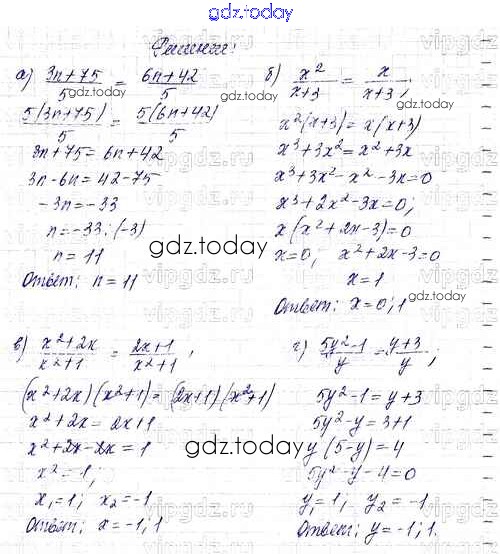 gdz.today
Решение:
а) (3n+75)/5 = (6n+42)/5
5(3n+75)/5 = 5(6n+42)/5
3n+75=6n+42
3n-6n=42-75
-3n=-33
n=-33:(-3)
n=11
Ответ: n=11
б) x²/(x+3) = x/(x+3);
x²(x+3)=x(x+3)
x³+3x²=x²+3x
x³+3x²-x²-3x=0
x³+2x²-3x=0;
x(x²+2x-3)=0
x=0; x²+2x-3=0
x=1
Ответ: x=0;1
gdz.today
в) (x²+2x)/(x²+1) = (2x+1)/(x²+1);
(x²+2x)(x²+1)=(2x+1)(x²+1)
x²+2x=2x+1
x²+2x-2x=1
x²=1;
x₁=1; x₂=-1
Ответ: x=-1;1
г) (5y²-1)/y = (y+3)/y;
5y²-1=y+3
5y²-y=3+1
y(5-y)=4
5y²-y-4=0
y₁=1; y₂=-1
Ответ: y=-1;1.
gdz.today